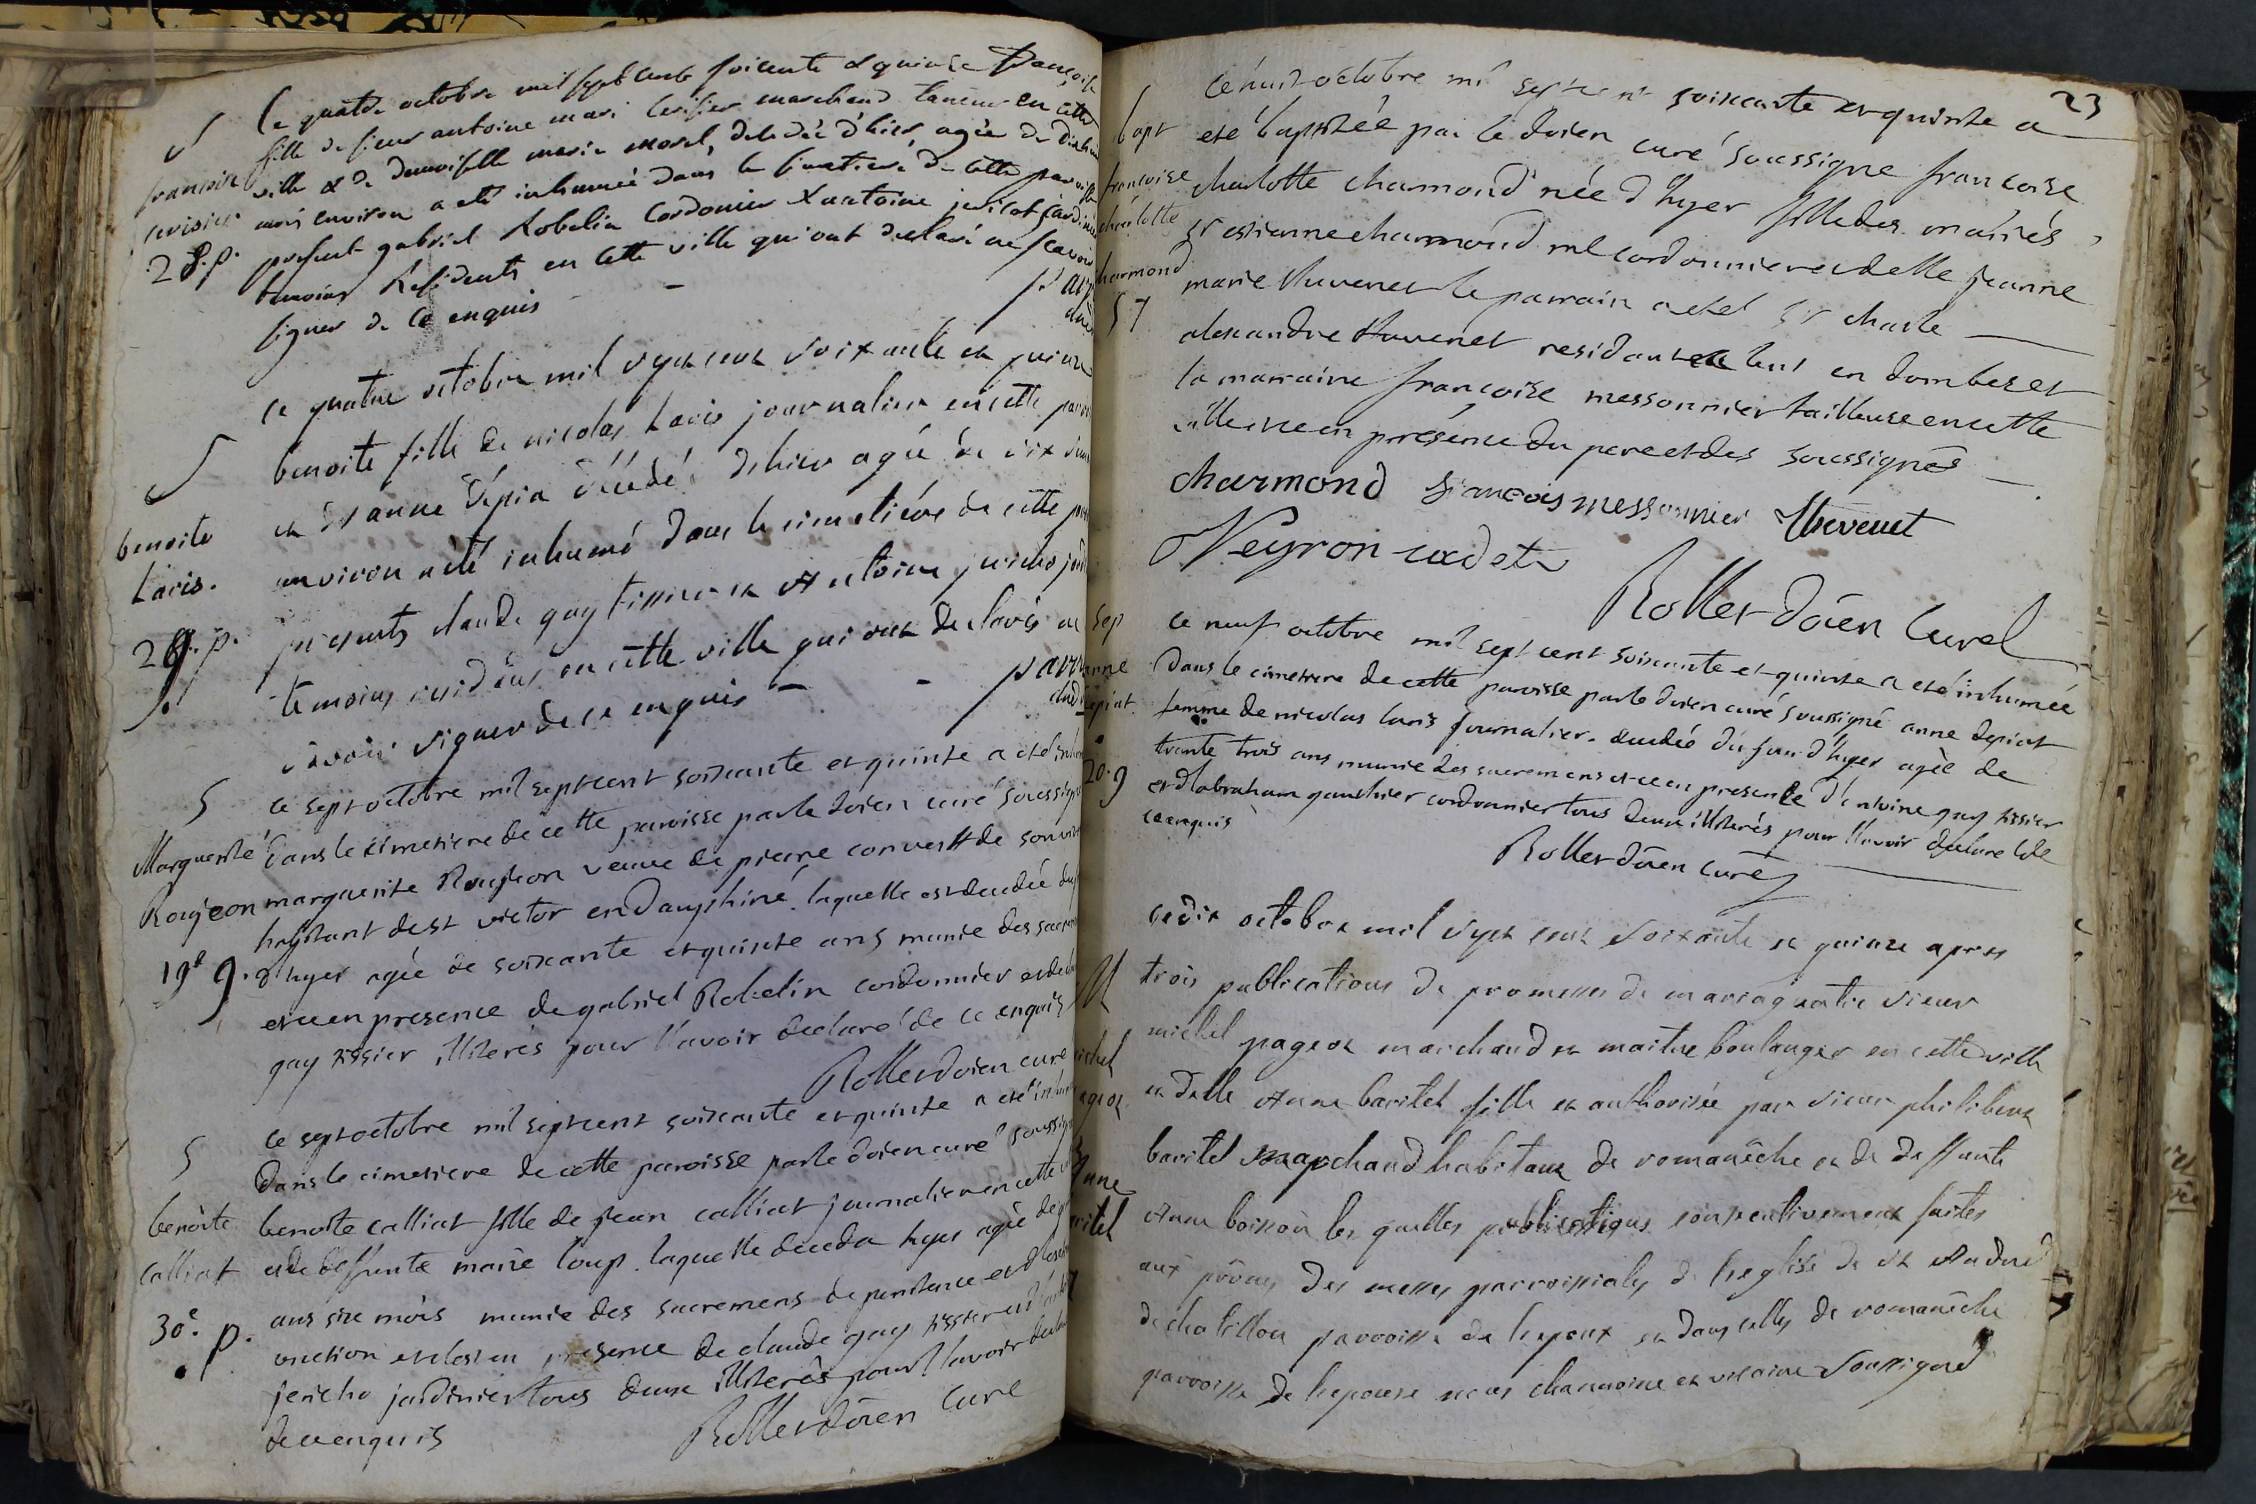 S
françoise
cerisier
28. p.
Ce quatre octobre mil sept cents soixante & quinze françoise
fille de sieur antoine mari cerisier marchand taneur en cette
ville & de demoiselle marie morel, decedée d'hier agée de dix huit
mois environ a été inhumée dans le simetiere de cette paroisse
present gabriel Robelin Cordonier & antoine jericot jardinier
temoins Residents en cette ville qui ont declaré ne scavoir
signer de ce enquis
S
benoite
Laris.
28. p.
ce quatre octobre mil sept cent soixante et quinze
benoite fille de nicolas Laris journalier en cette
et d'anne Dépia décédé d'hier agé de six
environ a été inhumé dans le cimetiére de cette
presents claude gay tissier et antoine jericho
temoins residens en cette ville qui ont declaré ne
savoir signer de ce enquis
S
Marguerite
Roujeon
19e g.
ce sept octobre mil sept cent soixante et quinze a eté
dans le cimetiere de cette paroisse par le doien curé soussigné
marguerite Roujeon veuve de pierre convert de son
habitant de st victor en Dauphiné. laquelle est decedée
d'hyer agée de soixante et quinze ans munie des
et ce en presence de gabriel Robelin cordonnier et de
gay tissier illiterés pour l'avoir declaré de ce enquis
Roller doien curé
S
benoite
calliat
30e. p.
ce sept octobre mil sept cent soixante et quinze a eté
dans le cimetiere de cette paroisse par le doien curé soussigné
benoite calliat fille de jean calliat journalier en cette
et de deffunte marie loup. laquelle deceda hyer agée de
ans six mois munie des sacremens de penitence et d'extreme
onction et ce en presence de claude gay tissier et d'antoine
jericho jardinier tous deux illiterés pour l'avoir declaré
de ce enquis
Roller doien curé
23
bapt
françoise
charlotte
charmond
57
ce huit octobre mil sept cent soixante et quinze a
eté baptisée par le doien curé soussigné françoise
charlotte charmond née d'hyer fille des mariés
sr estienne charmond me cordonnier et delle jeanne
marie thuvenet le parrain a eté sr charle
alexandre thuvenet residant en dombes et
la marraine françoise messonnier tailleuse en cette
ville et ce en présence du pere et des soussignés
charmond françois messonnier Thevenet
Neyron cadet
Roller doien curé
sep
anne
depiat.
20. g
ce neuf octobre mil sept cent soixante et quinze a eté inhumée
dans le cimetiere de cette paroisse par le doien curé soussigné anne depiat
femme de nicolas laris journalier. decedée du jour d'hyer agée de
trente trois ans munie des sacremens et ce en presence d'antoine gay tissier
et d'abraham gauthier cordonnier tous deux illiterés pour l'avoir declaré de
ce enquis
Roller doien curé
M
michel
pageot
Anne
baritel
ce dix octobre mil sept cent soixante et quinze apres
trois publications de promesses de mariage entre sieur
michel pageot marchand et maitre boulanger en cette ville
et delle Anne baritel fille et authorisée par sieur philibert
baritel marchand habitant de romanêche et de deffunte
Anne boisson les quelles publications consecutivement faites
aux prônes des messes parroissiales de l'eglise de st André
de chatillon parroisse de l'epoux et dans celles de romanêche
parroisse de l'epouse nous channoine et vicaire soussigné